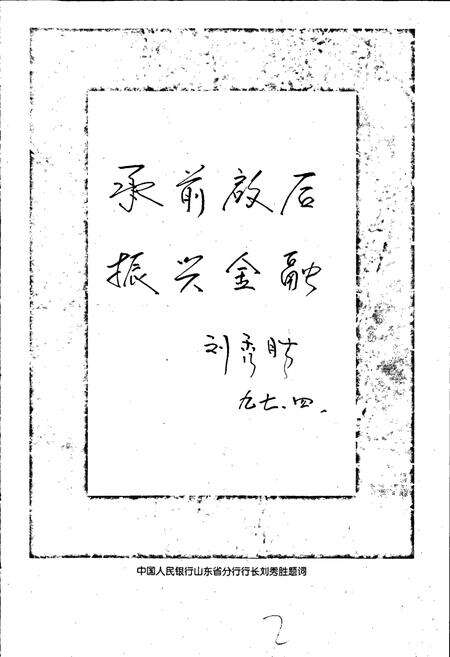 承前啟后
振兴金融
刘秀胜
九七.四.
中国人民银行山东省分行行长刘秀胜题词
2